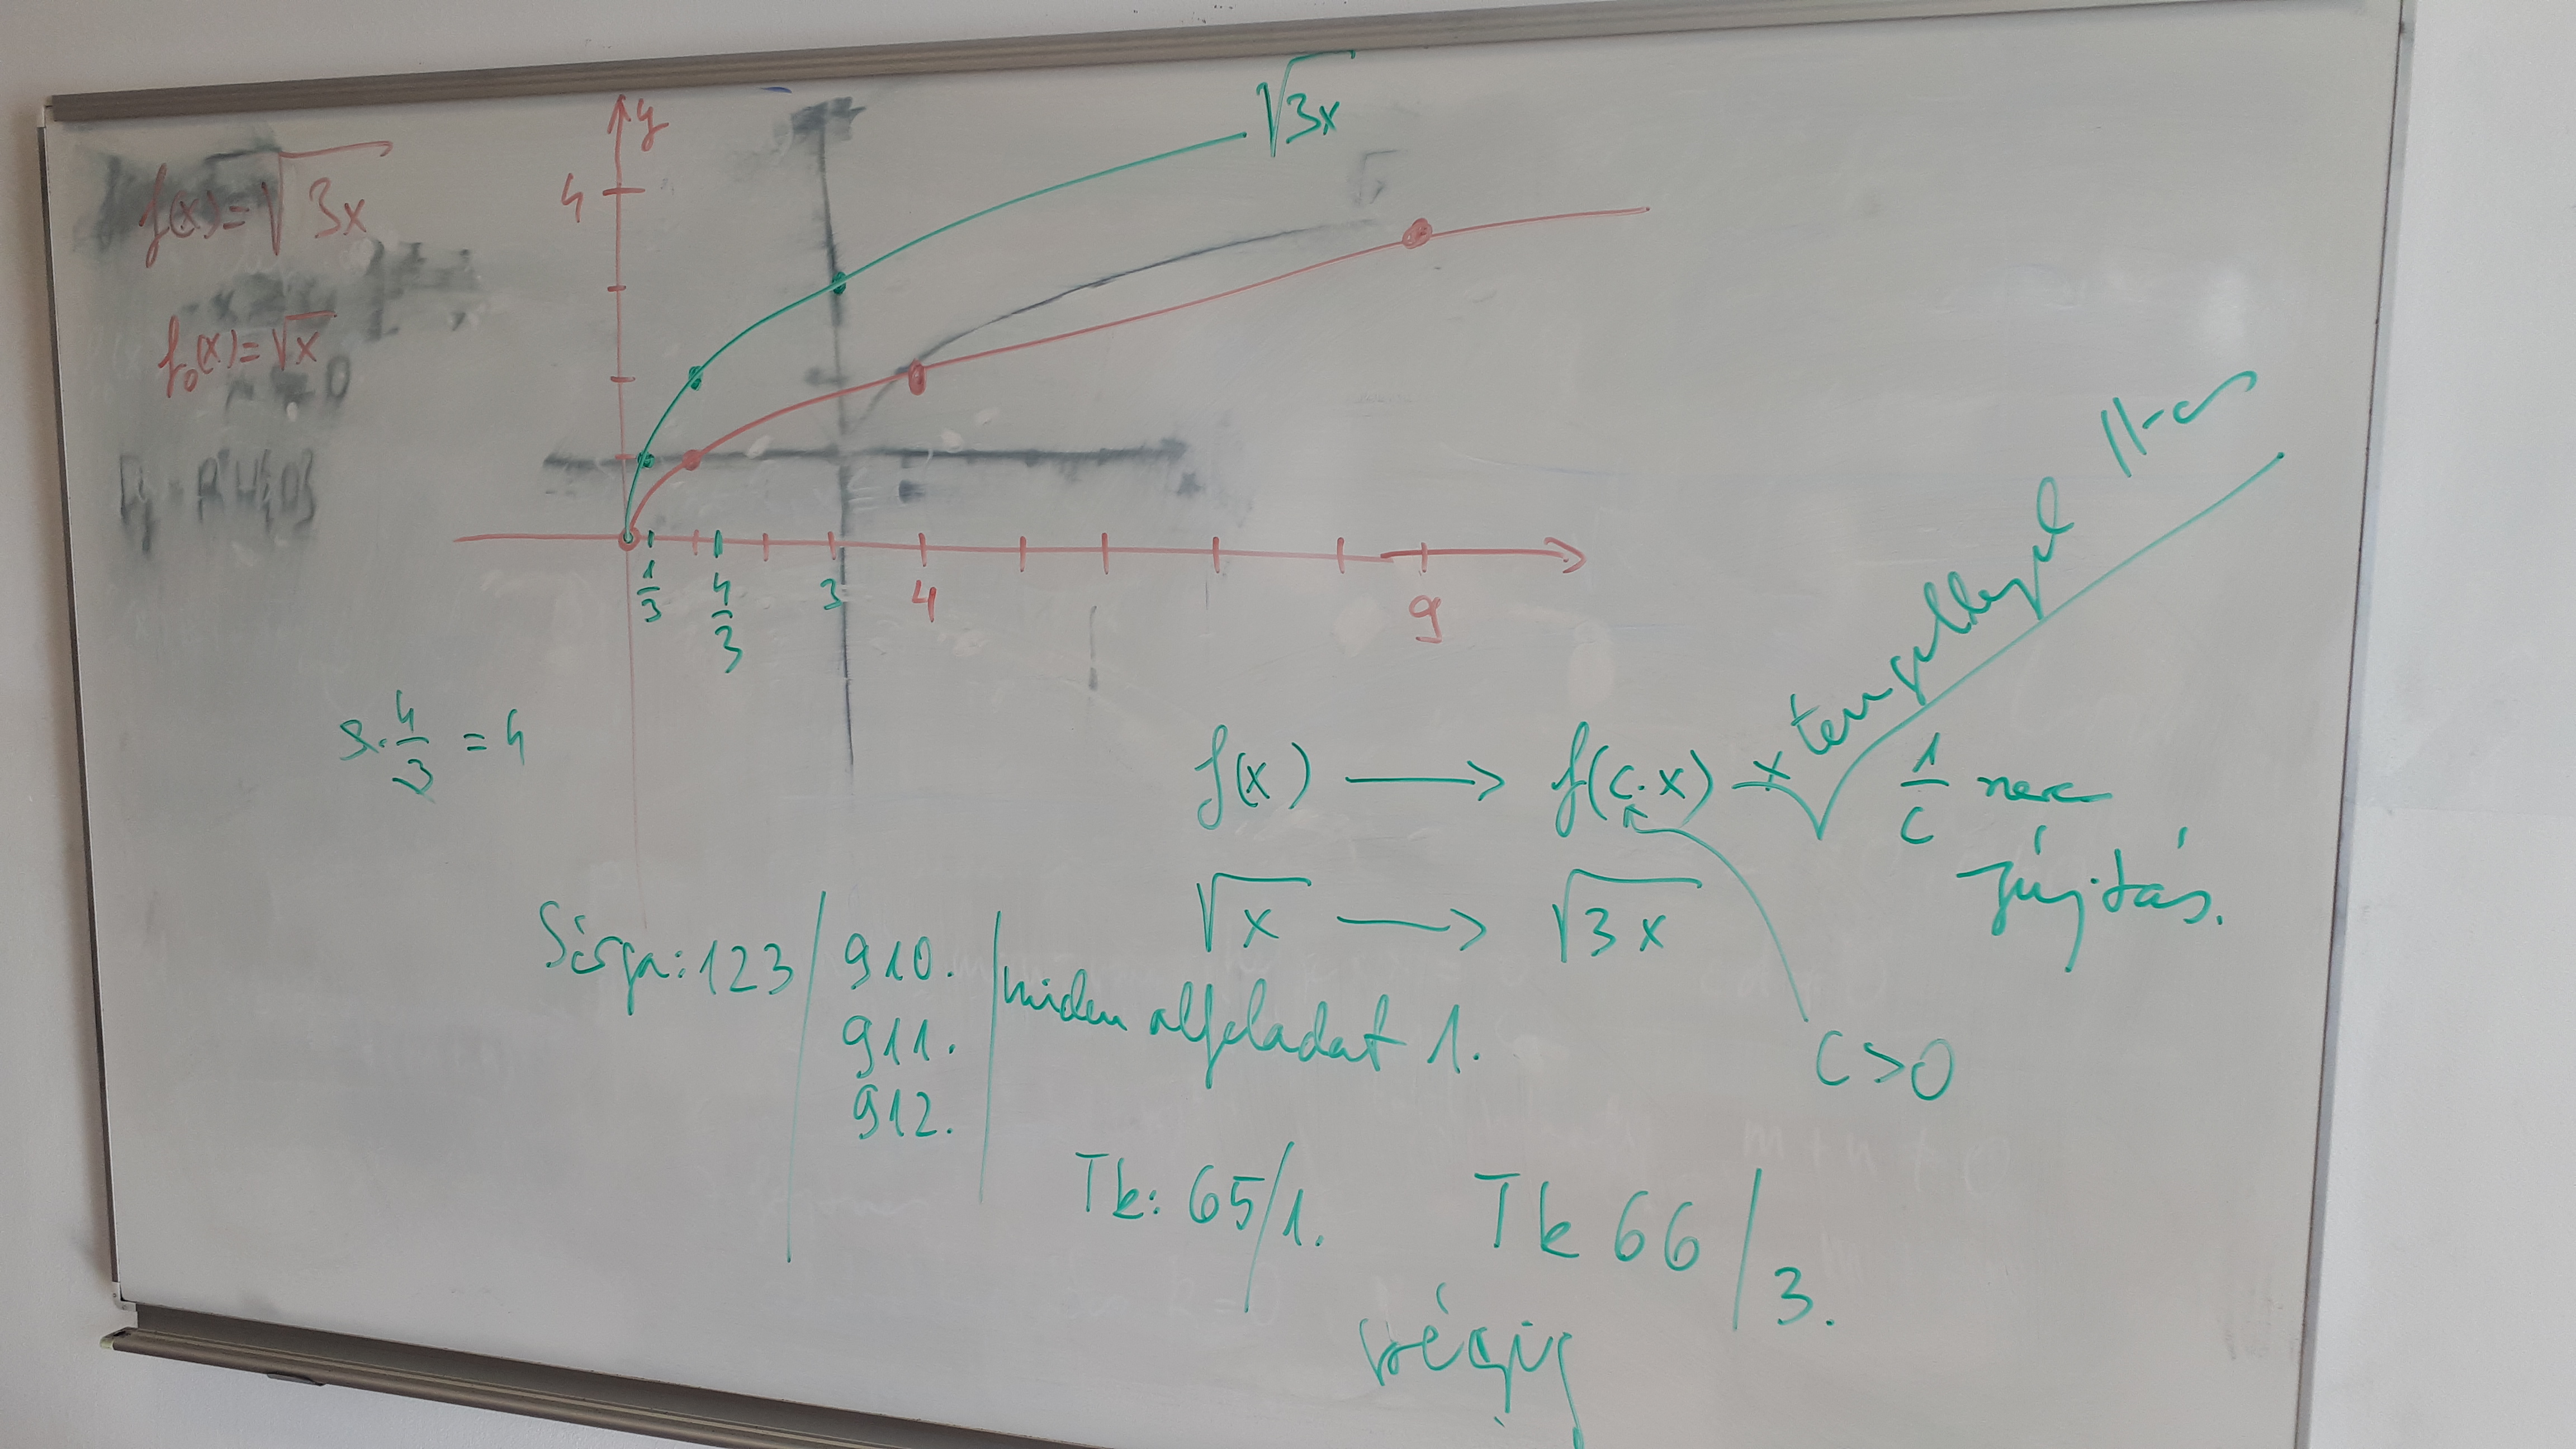 f(x)=√3x
f₀(x)=√x
y
4
√3x
√
1/3 4/3 3 4 9
3·4/3=4
f(x) → f(c·x) x tengellyel ||-os
1/c nyújtás.
√x → √3x
c>0
Sárga: 123/ 910. | minden alfeladat 1.
911.
912.
Tk: 65/1. Tk 66/3.
végig